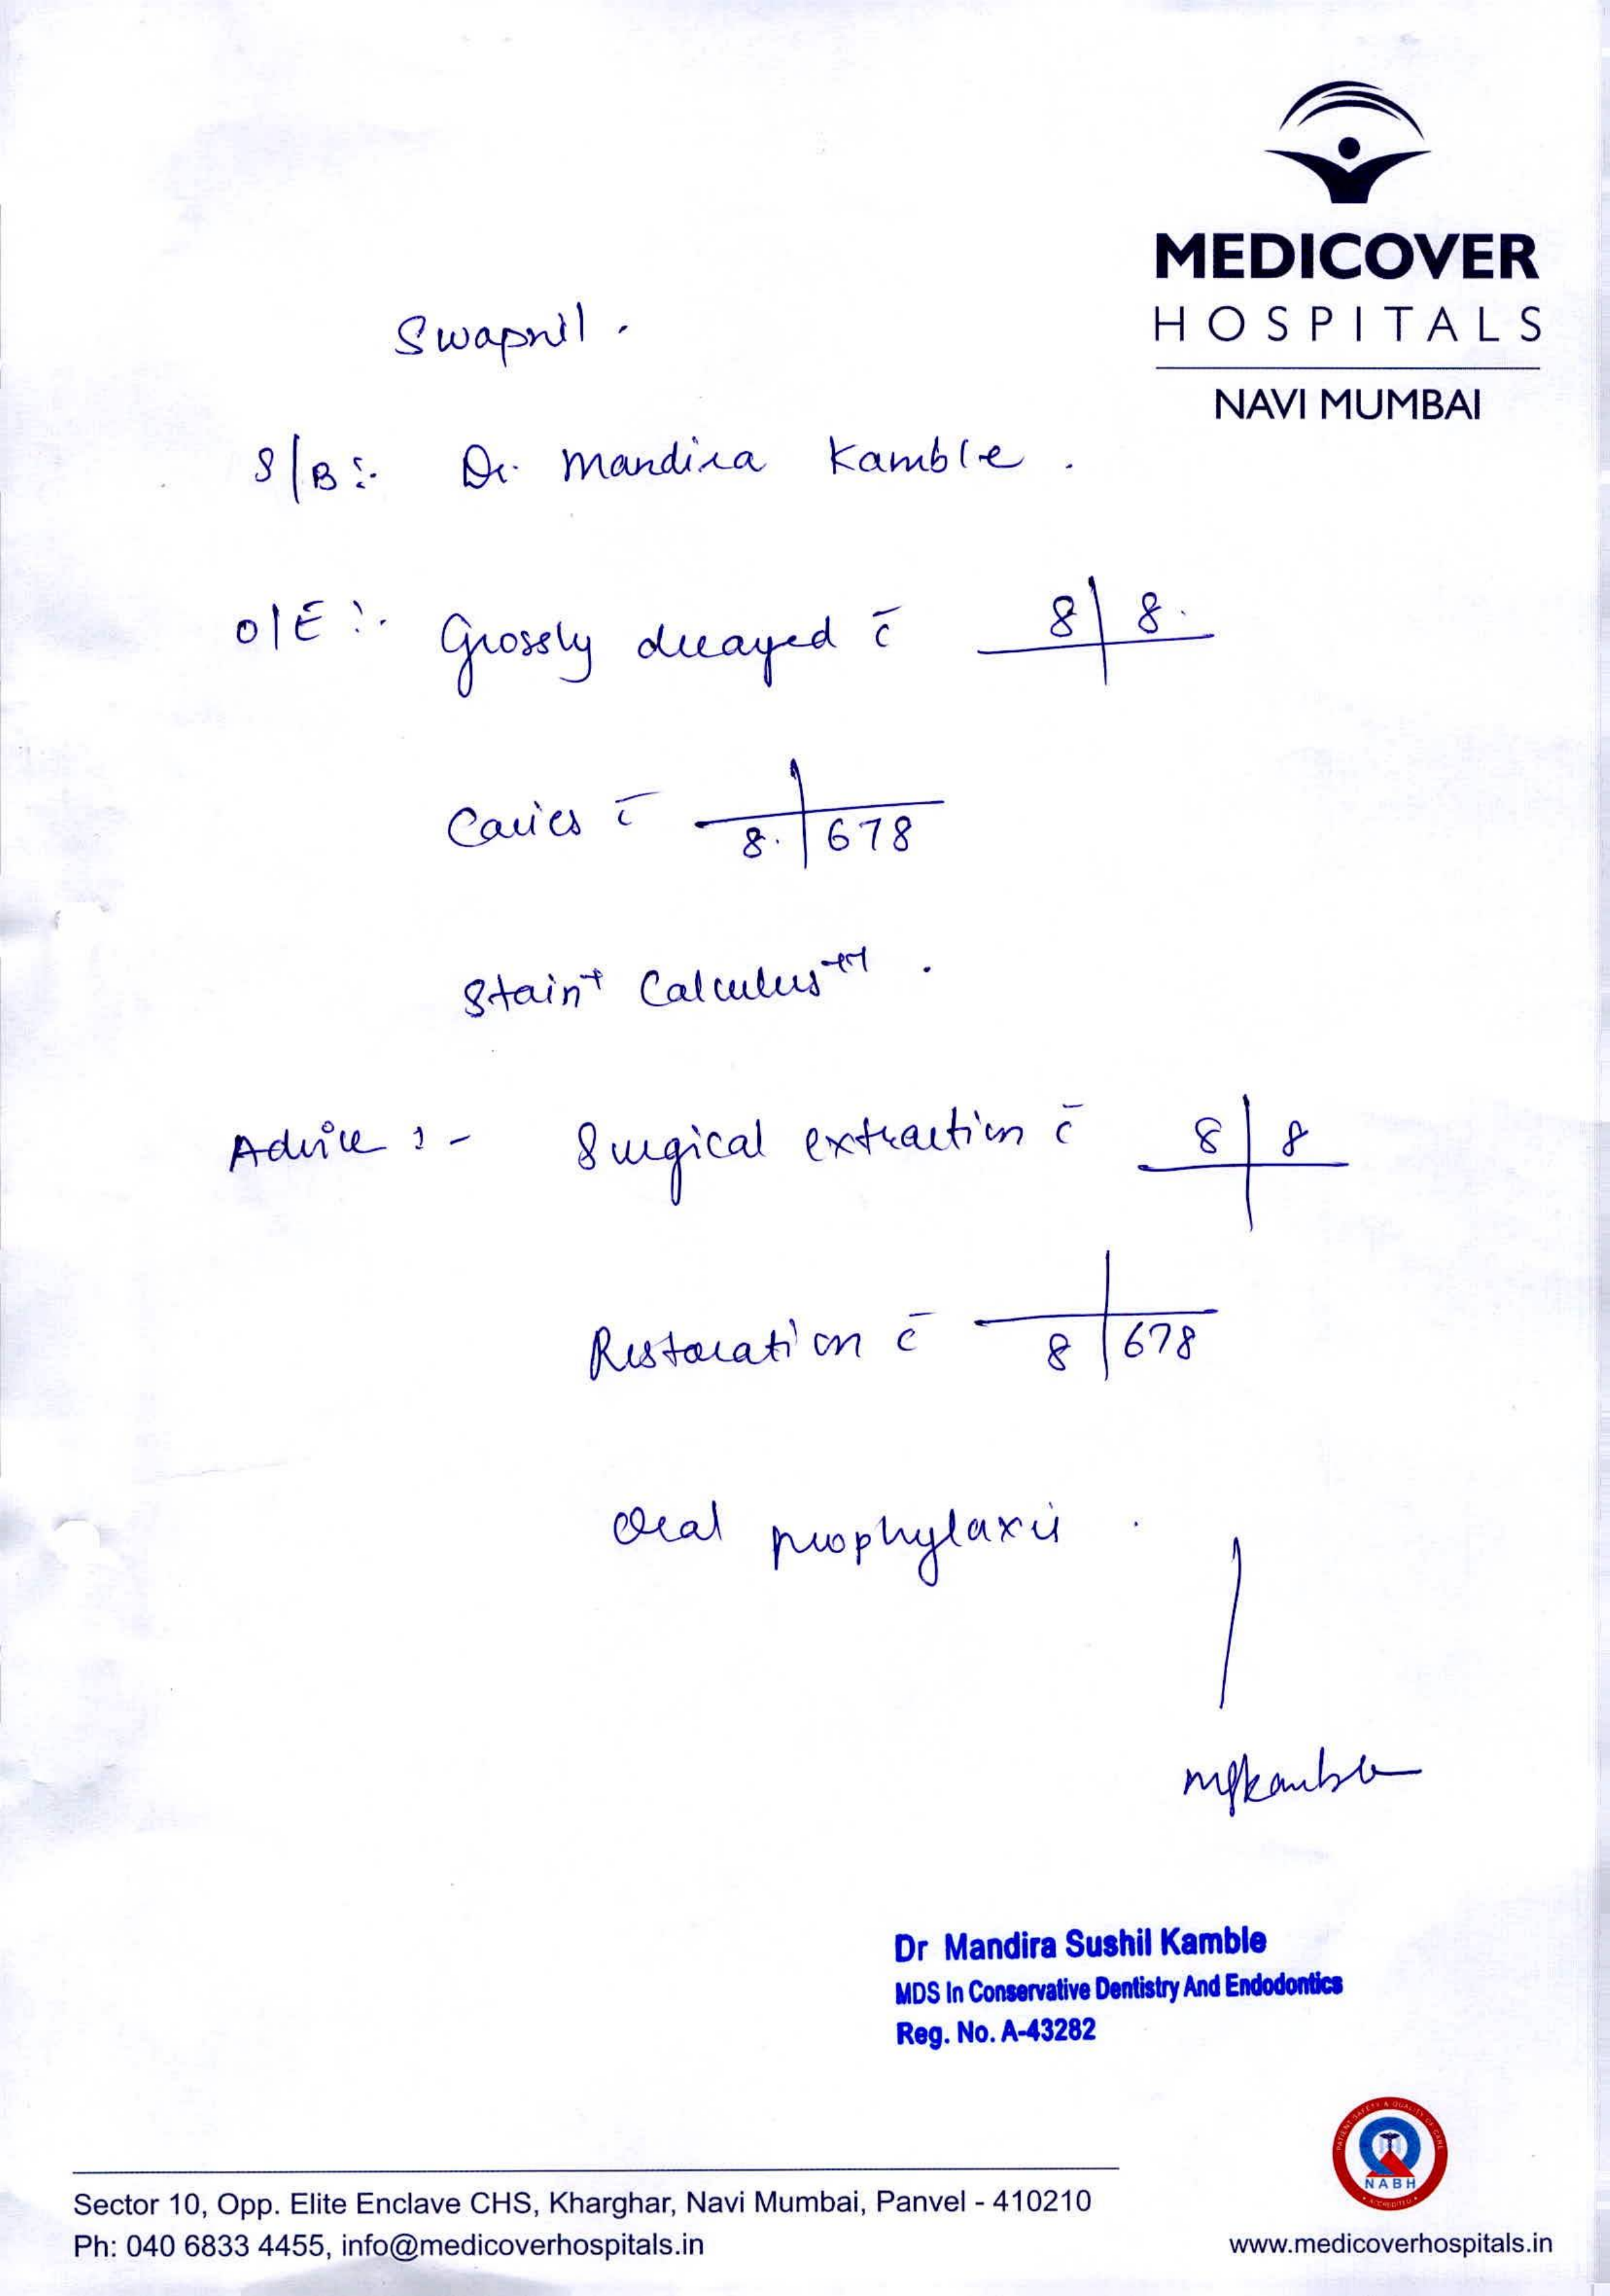 MEDICOVER
HOSPITALS
NAVI MUMBAI
Swapnil.
S/B:- Dr. Mandira Kamble.
O/E:- Grossly decayed c̄ 8|8.
Caries c̄ 8.|678
Stain+ Calculus++.
Advice:- Surgical extraction c̄ 8|8
Restoration c̄ 8|678
Oral prophylaxis.
Dr Mandira Sushil Kamble
MDS In Conservative Dentistry And Endodontics
Reg. No. A-43282
PATIENT SAFETY & QUALITY OF CARE
NABH
ACCREDITED
Sector 10, Opp. Elite Enclave CHS, Kharghar, Navi Mumbai, Panvel - 410210
Ph: 040 6833 4455, info@medicoverhospitals.in
www.medicoverhospitals.in